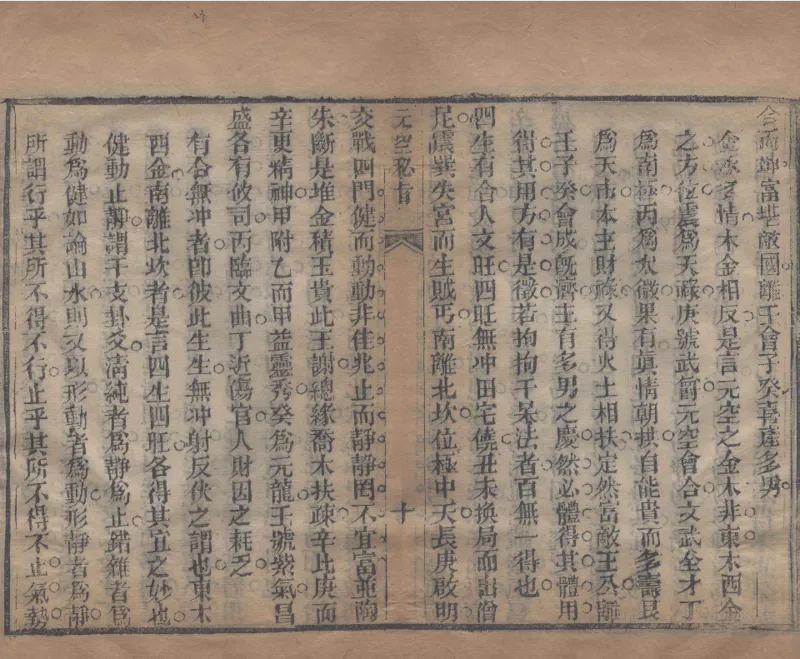 合南坤富堪敵國離壬會子癸喜產多男
金水多情木金相反是言元空之金木非東木西金
之方位震為天祿庚號武爵元空會合文武全才丁
為南極丙為太微果有真情朝拱自能貴而多壽艮
為天市本主財祿又得火土相扶定然富敵王公離
壬子癸會成既濟主有多男之慶然必體得其體用
得其用方有是徵若拘拘千呆法者百無一得也
四生有合人文旺四旺無冲田宅饒丑未換局而出僧
尼震巽失宮而生賊丐南離北坎位極中天長庚啟明
元空秘旨
十
交戰四門健而動動非佳兆止而靜靜罔不宜富並陶
朱斷是堆金積玉貴比王謝總緣喬木扶疎辛比庚而
辛更精神甲附乙而甲益靈秀癸為元龍壬號紫氣昌
盛各有攸司丙臨文曲丁近傷官人財因之耗乏
有合無冲者卽彼此生生無冲射反伏之謂也東木
西金南離北坎者是言四生四旺各得其宜之妙也
健動止靜謂干支卦爻清純者為靜為止錯雜者為
動為健如論山水則又以形動者為動形靜者為靜
所謂行乎其所不得不行止乎其所不得不止氣勢